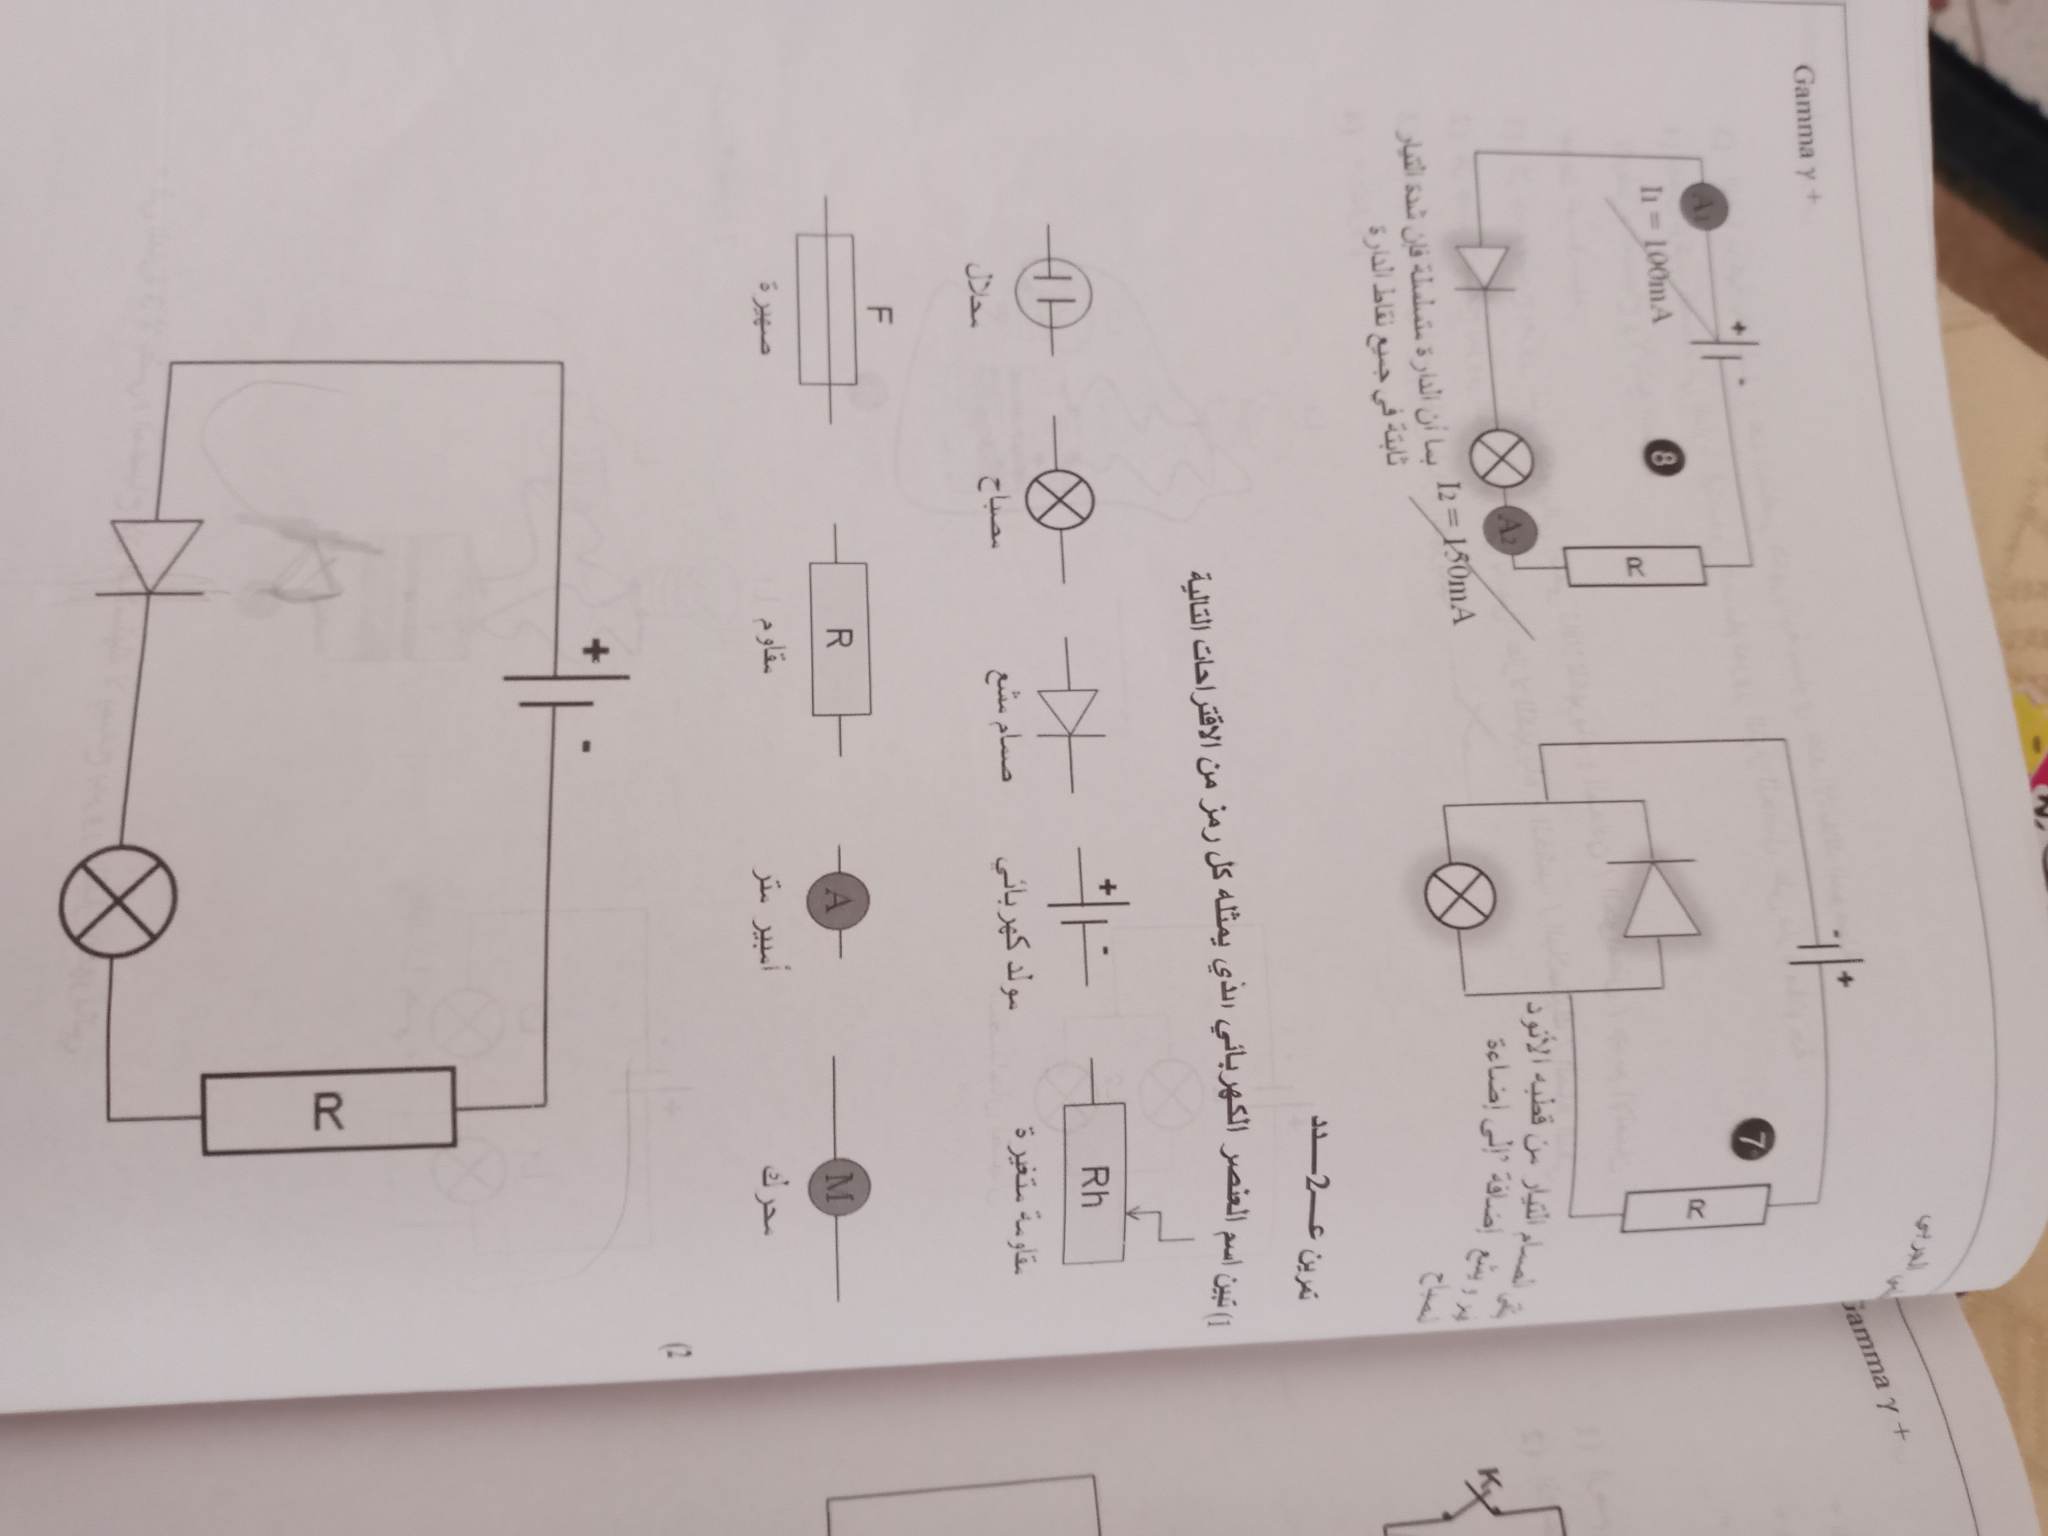 Gamma γ +
7
- +
R
الصمام التيار من قطبه الأنود
ويشع إضافة إلى إضاءة
8
+ -
A1
I1 = 100mA
R
A2
I2 = 150mA
بما أن الدارة متسلسلة فإن شدة التيار
ثابتة في جميع نقاط الدارة
تمرين عـــ2ــدد
1) تبين اسم العنصر الكهربائي الذي يمثله كل رمز من الاقتراحات التالية
Rh
+ -
مقاومة متغيرة
مولد كهربائي
صمام مشع
مصباح
محلال
M
A
R
F
محرك
أمبير متر
مقاوم
صهيرة
2)
+ -
R
Gamma γ +